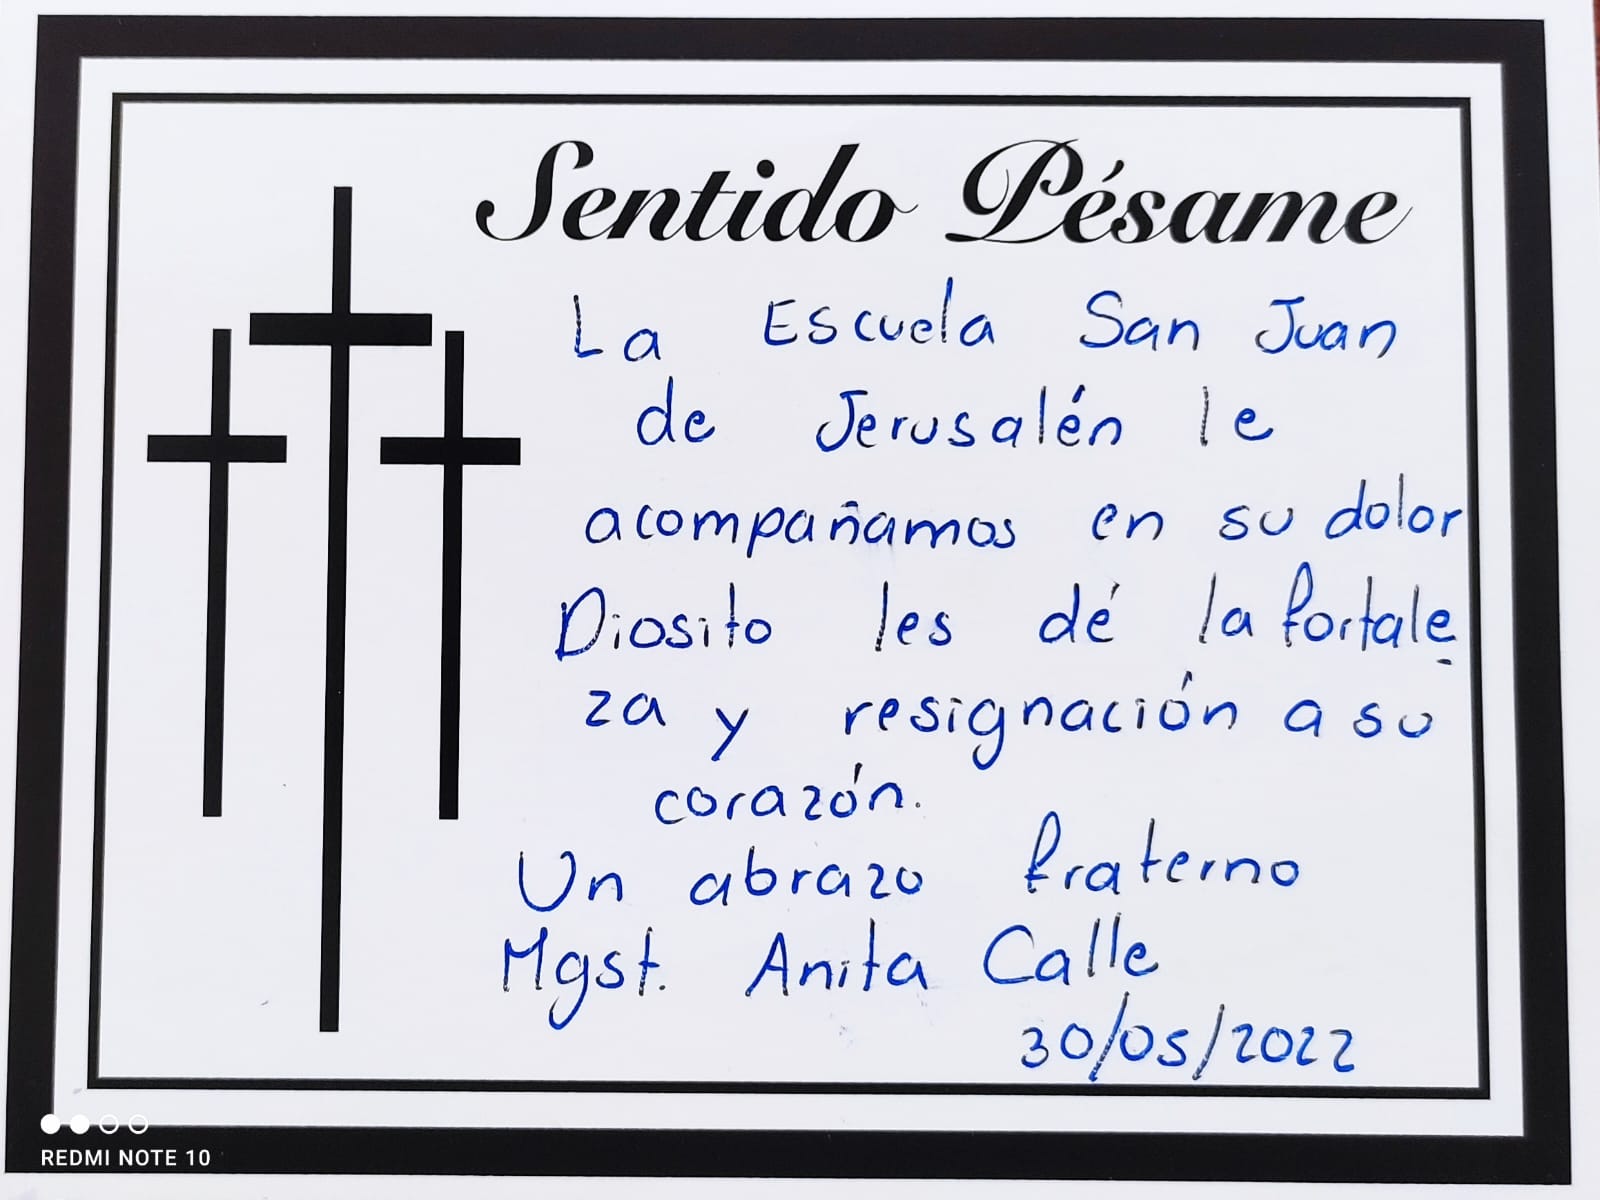 Sentido Pésame
La Escuela San Juan
de Jerusalén le
acompañamos en su dolor
Diosito les dé la fortale
za y resignación a su
corazón.
Un abrazo fraterno
Mgst. Anita Calle
30/05/2022
REDMI NOTE 10